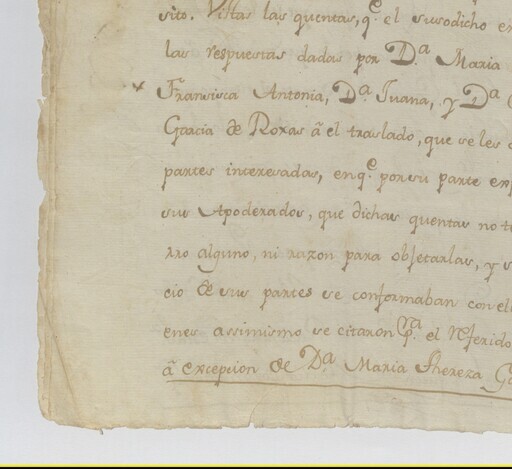 sito. Vistas las quentas, q.e el susodicho
las respuestas dadas por D.a Maria
Fransisca Antonia, D.a Juana, y D.a
Gracia de Roxas â el traslado, que se les
partes interesadas, en q.e por su parte
sus Apoderados, que dichas quentas no
rro alguno, ni razon para objetarlas, y
cio de sus partes se conformaban con
enes assimismo se citaron p.a el referido
â excepcion de D.a Maria Thereza